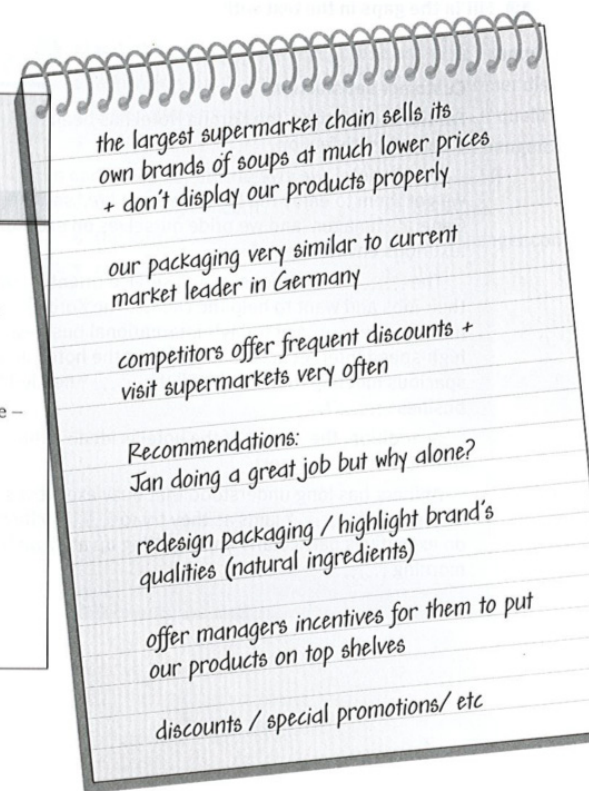 the largest supermarket chain sells its
own brands of soups at much lower prices
+ don't display our products properly
our packaging very similar to current
market leader in Germany
competitors offer frequent discounts +
visit supermarkets very often
e –
Recommendations:
Jan doing a great job but why alone?
redesign packaging / highlight brand's
qualities (natural ingredients)
offer managers incentives for them to put
our products on top shelves
discounts / special promotions/ etc